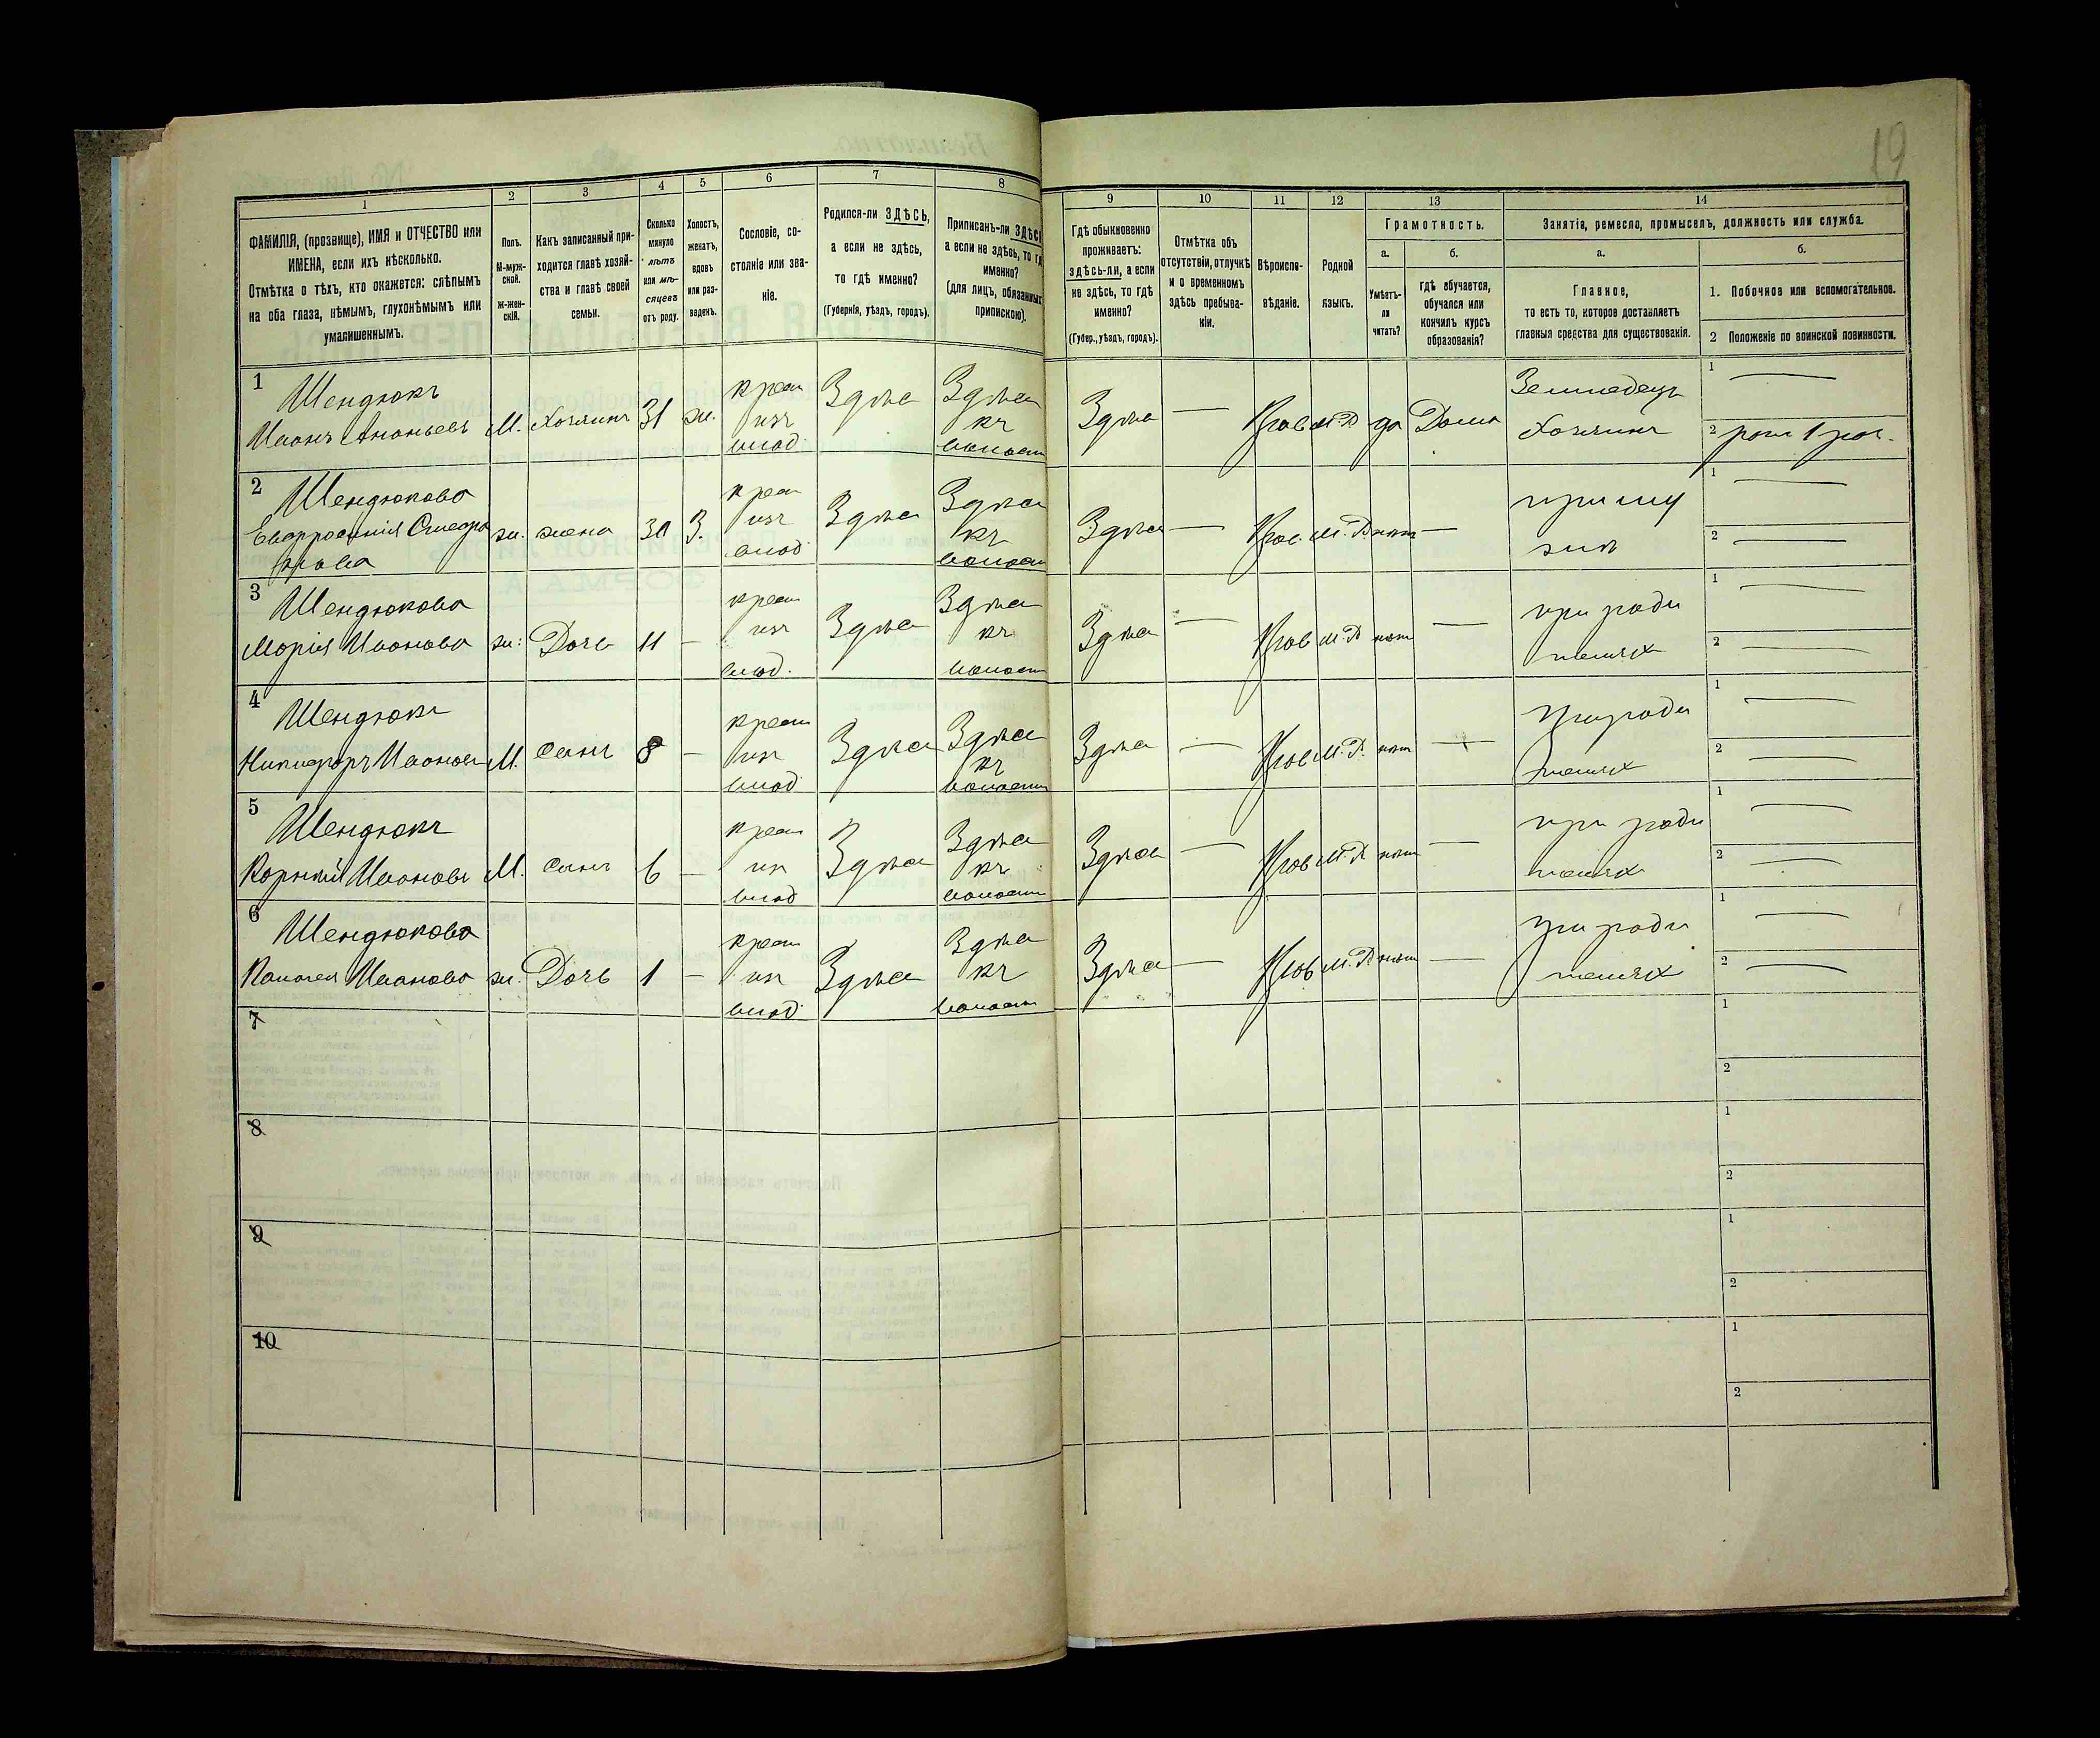 19
1
2
3
4
5
6
7
8
9
10
11
12
13
14
ФАМИЛІЯ, (прозвище), ИМЯ и ОТЧЕСТВО или
ИМЕНА, если ихъ нѣсколько.
Отмѣтка о тѣхъ, кто окажется: слѣпымъ
на оба глаза, нѣмымъ, глухонѣмымъ или
умалишеннымъ.
Полъ.
М-муж-
ской.
Ж-жен-
скій.
Какъ записанный при-
ходится главѣ хозяй-
ства и главѣ своей
семьи.
Сколько
минуло
лѣтъ
или мѣ-
сяцевъ
отъ роду.
Холостъ,
женатъ,
вдовъ
или раз-
веденъ.
Сословіе, со-
стояніе или зва-
ніе.
Родился-ли ЗДѢСЬ,
а если не здѣсь,
то гдѣ именно?
(Губернія, уѣздъ, городъ).
Приписанъ-ли ЗДѢС
а если не здѣсь, то гд
именно?
(для лицъ, обязанных
припискою).
Гдѣ обыкновенно
проживаетъ:
здѣсь-ли, а если
не здѣсь, то гдѣ
именно?
(Губер., уѣздъ, городъ).
Отмѣтка объ
отсутствіи, отлучкѣ
и о временномъ
здѣсь пребыва-
ніи.
Вѣроиспо-
вѣданіе.
Родной
языкъ.
Грамотность.
а.
Умѣетъ-
ли
читать?
б.
гдѣ обучается,
обучался или
кончилъ курсъ
образованія?
Занятія, ремесло, промыселъ, должность или служба.
а.
Главное,
то есть то, которое доставляетъ
главныя средства для существованія.
б.
1. Побочное или вспомогательное.
2 Положеніе по воинской повинности.
1
Шендюкъ
Иванъ Ананьевъ М. Хозяинъ 31 ж. крест изъ влад Здѣсь Здѣсь къ волости Здѣсь — Прав М.Р да Дома Земледец хозяинъ
1 —
2 рат 1 раз.
2
Шендюкова
Евфросинія ж. жена 30 З. крест изъ влад Здѣсь Здѣсь къ волости Здѣсь — Прав. М.Р. нѣт — при му
жѣ
1 —
2 —
3
Шендюкова
Марія Иванова ж. Дочь 11 — крест изъ влад. Здѣсь Здѣсь къ волости Здѣсь — Прав М.Р нѣт — при роди
теляхъ
1 —
2 —
4
Шендюкъ
Никифоръ Ивановъ М. сынъ 8 — крест изъ влад Здѣсь Здѣсь къ волости Здѣсь — Прав М.Р. нѣт — при роди
теляхъ
1 —
2 —
5
Шендюкъ
Корнѣй Ивановъ М. сынъ 6 — крест из влад Здѣсь Здѣсь къ волости Здѣсь — Прав М.Р нѣт — при роди
теляхъ
1 —
2 —
6
Шендюкова
Иванова ж. Дочь 1 — крест изъ влад Здѣсь Здѣсь къ волости Здѣсь — Прав М.Р. нѣт — при роди
теляхъ
1 —
2 —
7
1
2
8
1
2
9
1
2
10
1
2